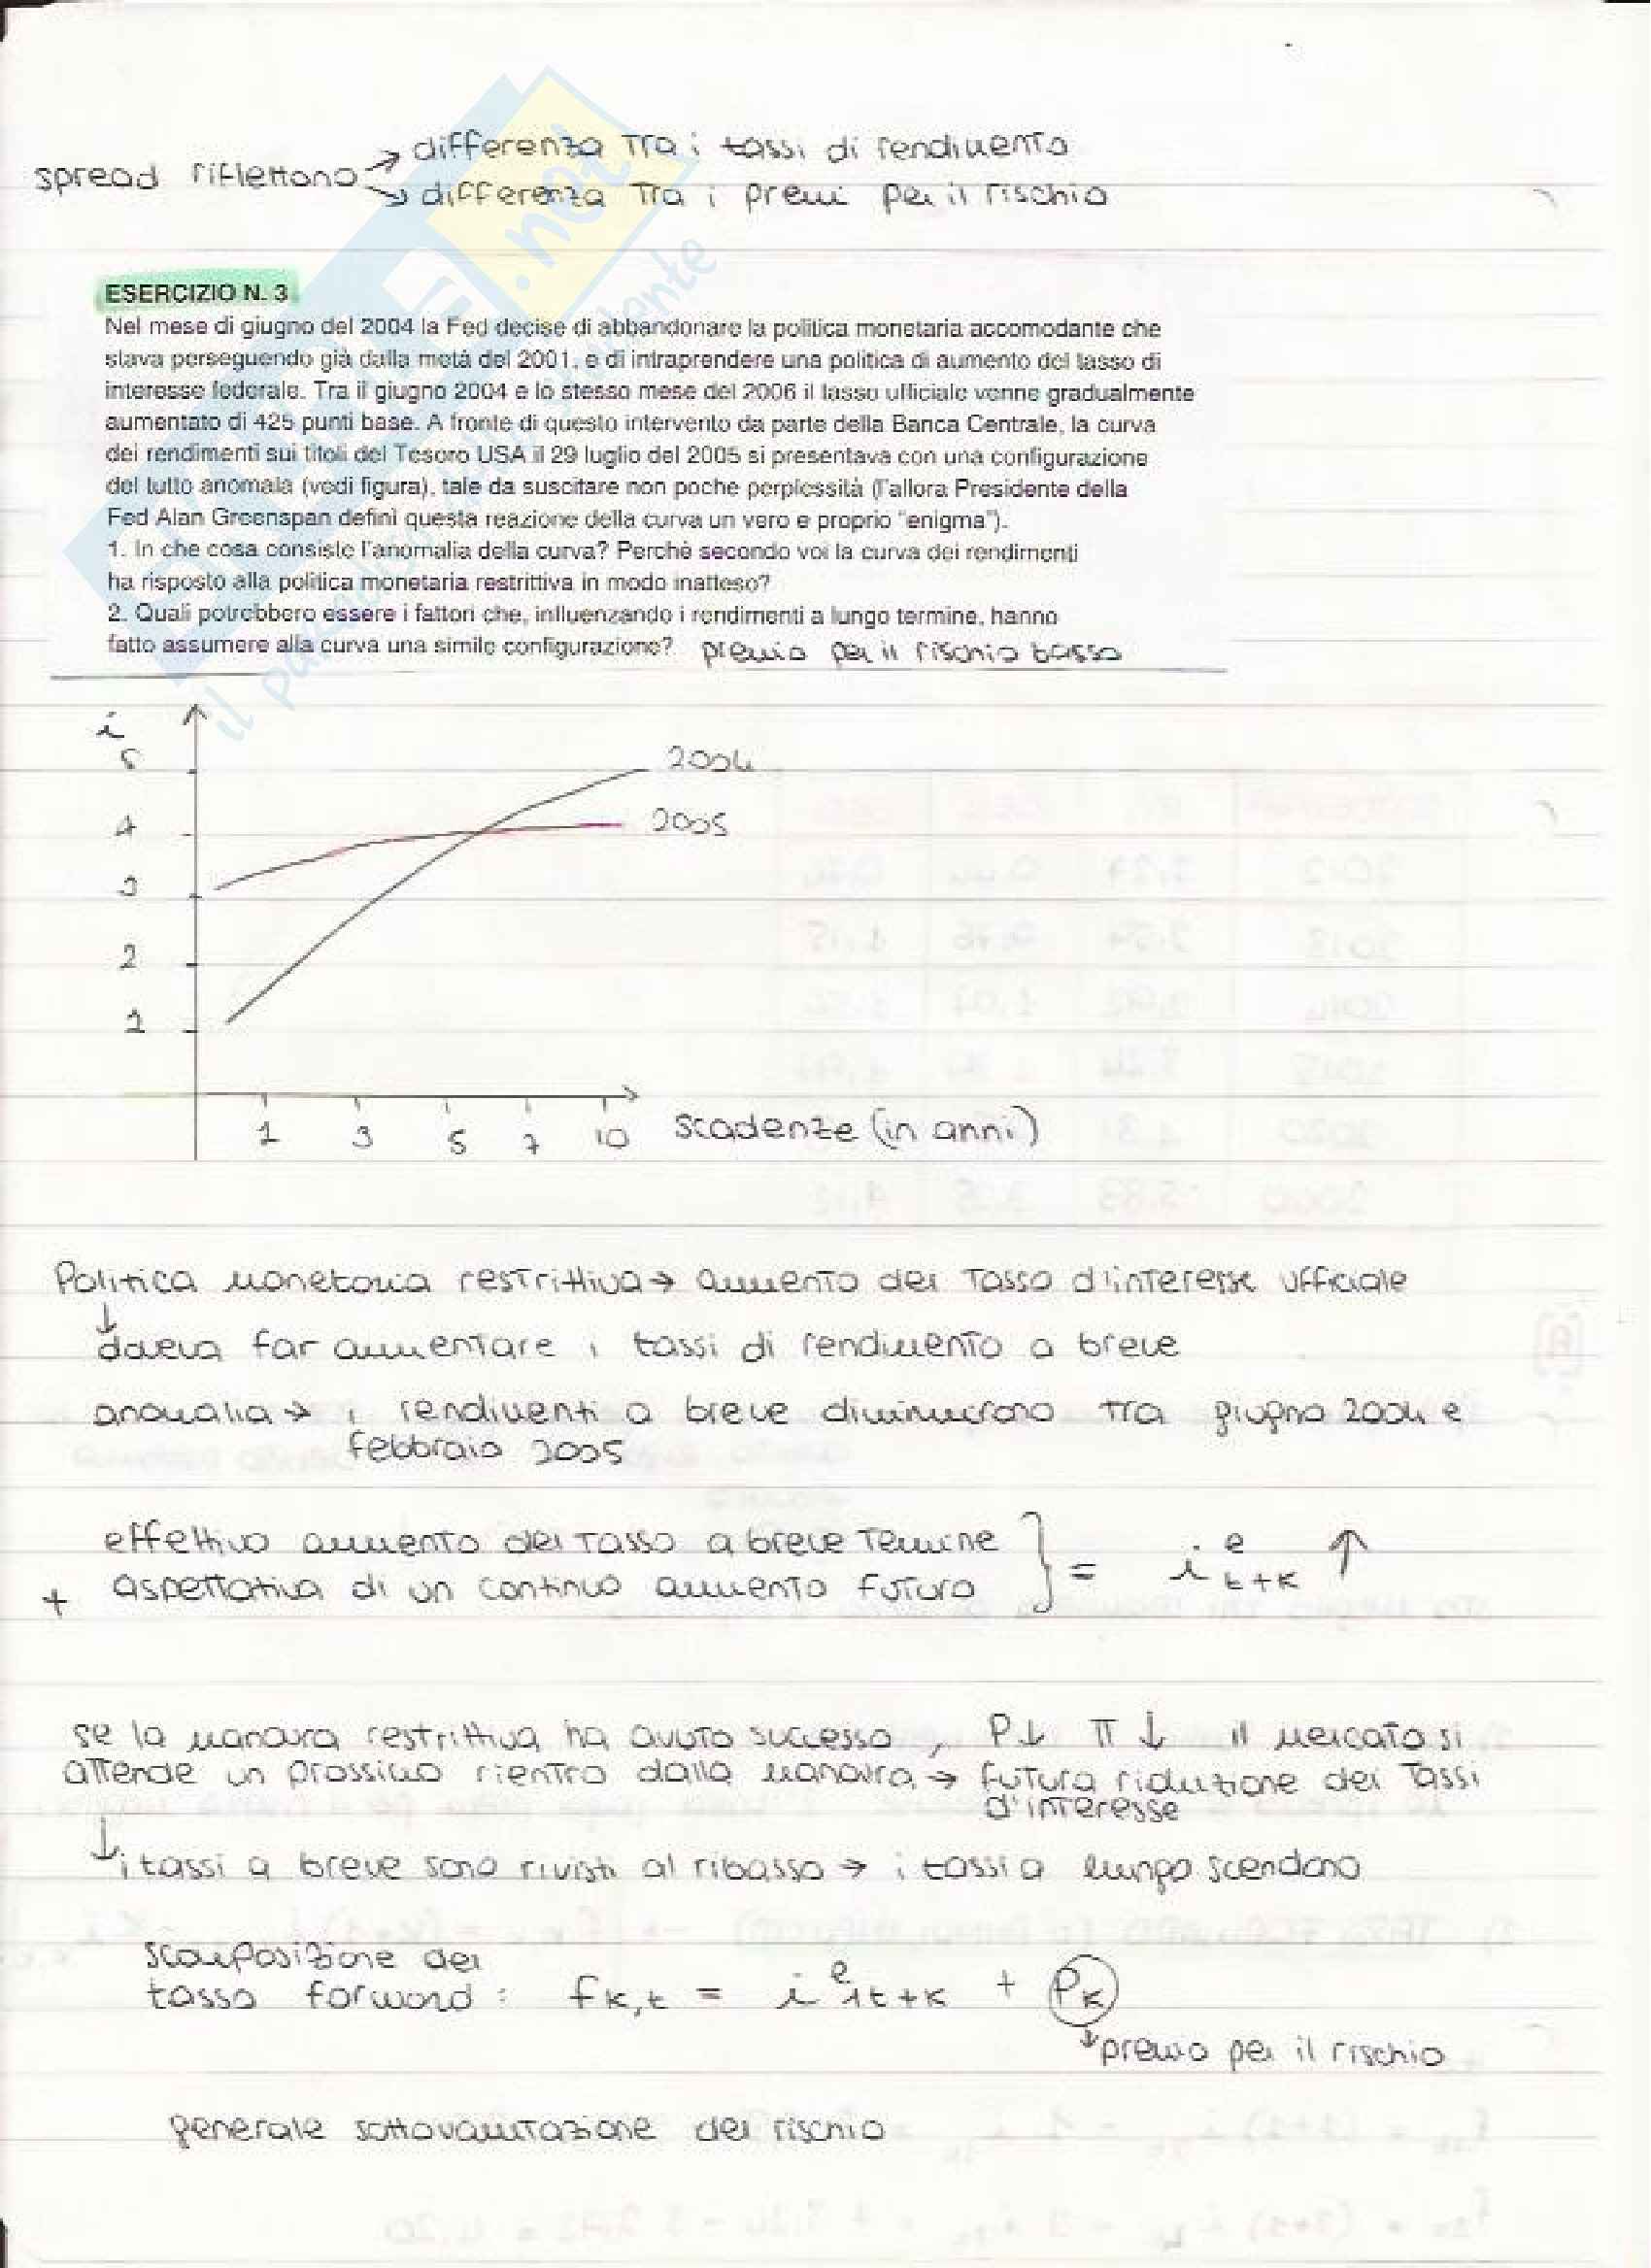 spread riflettono → differenza tra i tassi di rendimento
→ differenza tra i premi per il rischio
ESERCIZIO N. 3
Nel mese di giugno del 2004 la Fed decise di abbandonare la politica monetaria accomodante che
stava perseguendo già dalla metà del 2001, e di intraprendere una politica di aumento del tasso di
interesse federale. Tra il giugno 2004 e lo stesso mese del 2006 il tasso ufficiale venne gradualmente
aumentato di 425 punti base. A fronte di questo intervento da parte della Banca Centrale, la curva
dei rendimenti sui titoli del Tesoro USA il 29 luglio del 2005 si presentava con una configurazione
del tutto anomala (vedi figura), tale da suscitare non poche perplessità (l'allora Presidente della
Fed Alan Greenspan definì questa reazione della curva un vero e proprio "enigma").
1. In che cosa consiste l'anomalia della curva? Perchè secondo voi la curva dei rendimenti
ha risposto alla politica monetaria restrittiva in modo inatteso?
2. Quali potrebbero essere i fattori che, influenzando i rendimenti a lungo termine, hanno
fatto assumere alla curva una simile configurazione? premio per il rischio basso
i
5
2004
4
2005
3
2
1
1 3 5 7 10 scadenze (in anni)
Politica monetaria restrittiva → aumento del tasso d'interesse ufficiale
↓
doveva far aumentare i tassi di rendimento a breve
anomalia → i rendimenti a breve diminuirono tra giugno 2004 e
febbraio 2005
effettivo aumento del tasso a breve termine
+ aspettativa di un continuo aumento futuro } = i^e t+k ↑
se la manovra restrittiva ha avuto successo, P↓ π↓ il mercato si
attende un prossimo rientro dalla manovra → futura riduzione dei tassi
d'interesse
↓ i tassi a breve sono rivisti al ribasso → i tassi a lungo scendono
scomposizione del
tasso forward: f k,t = i^e 1t+k + Pk
↓ premio per il rischio
generale sottovalutazione del rischio